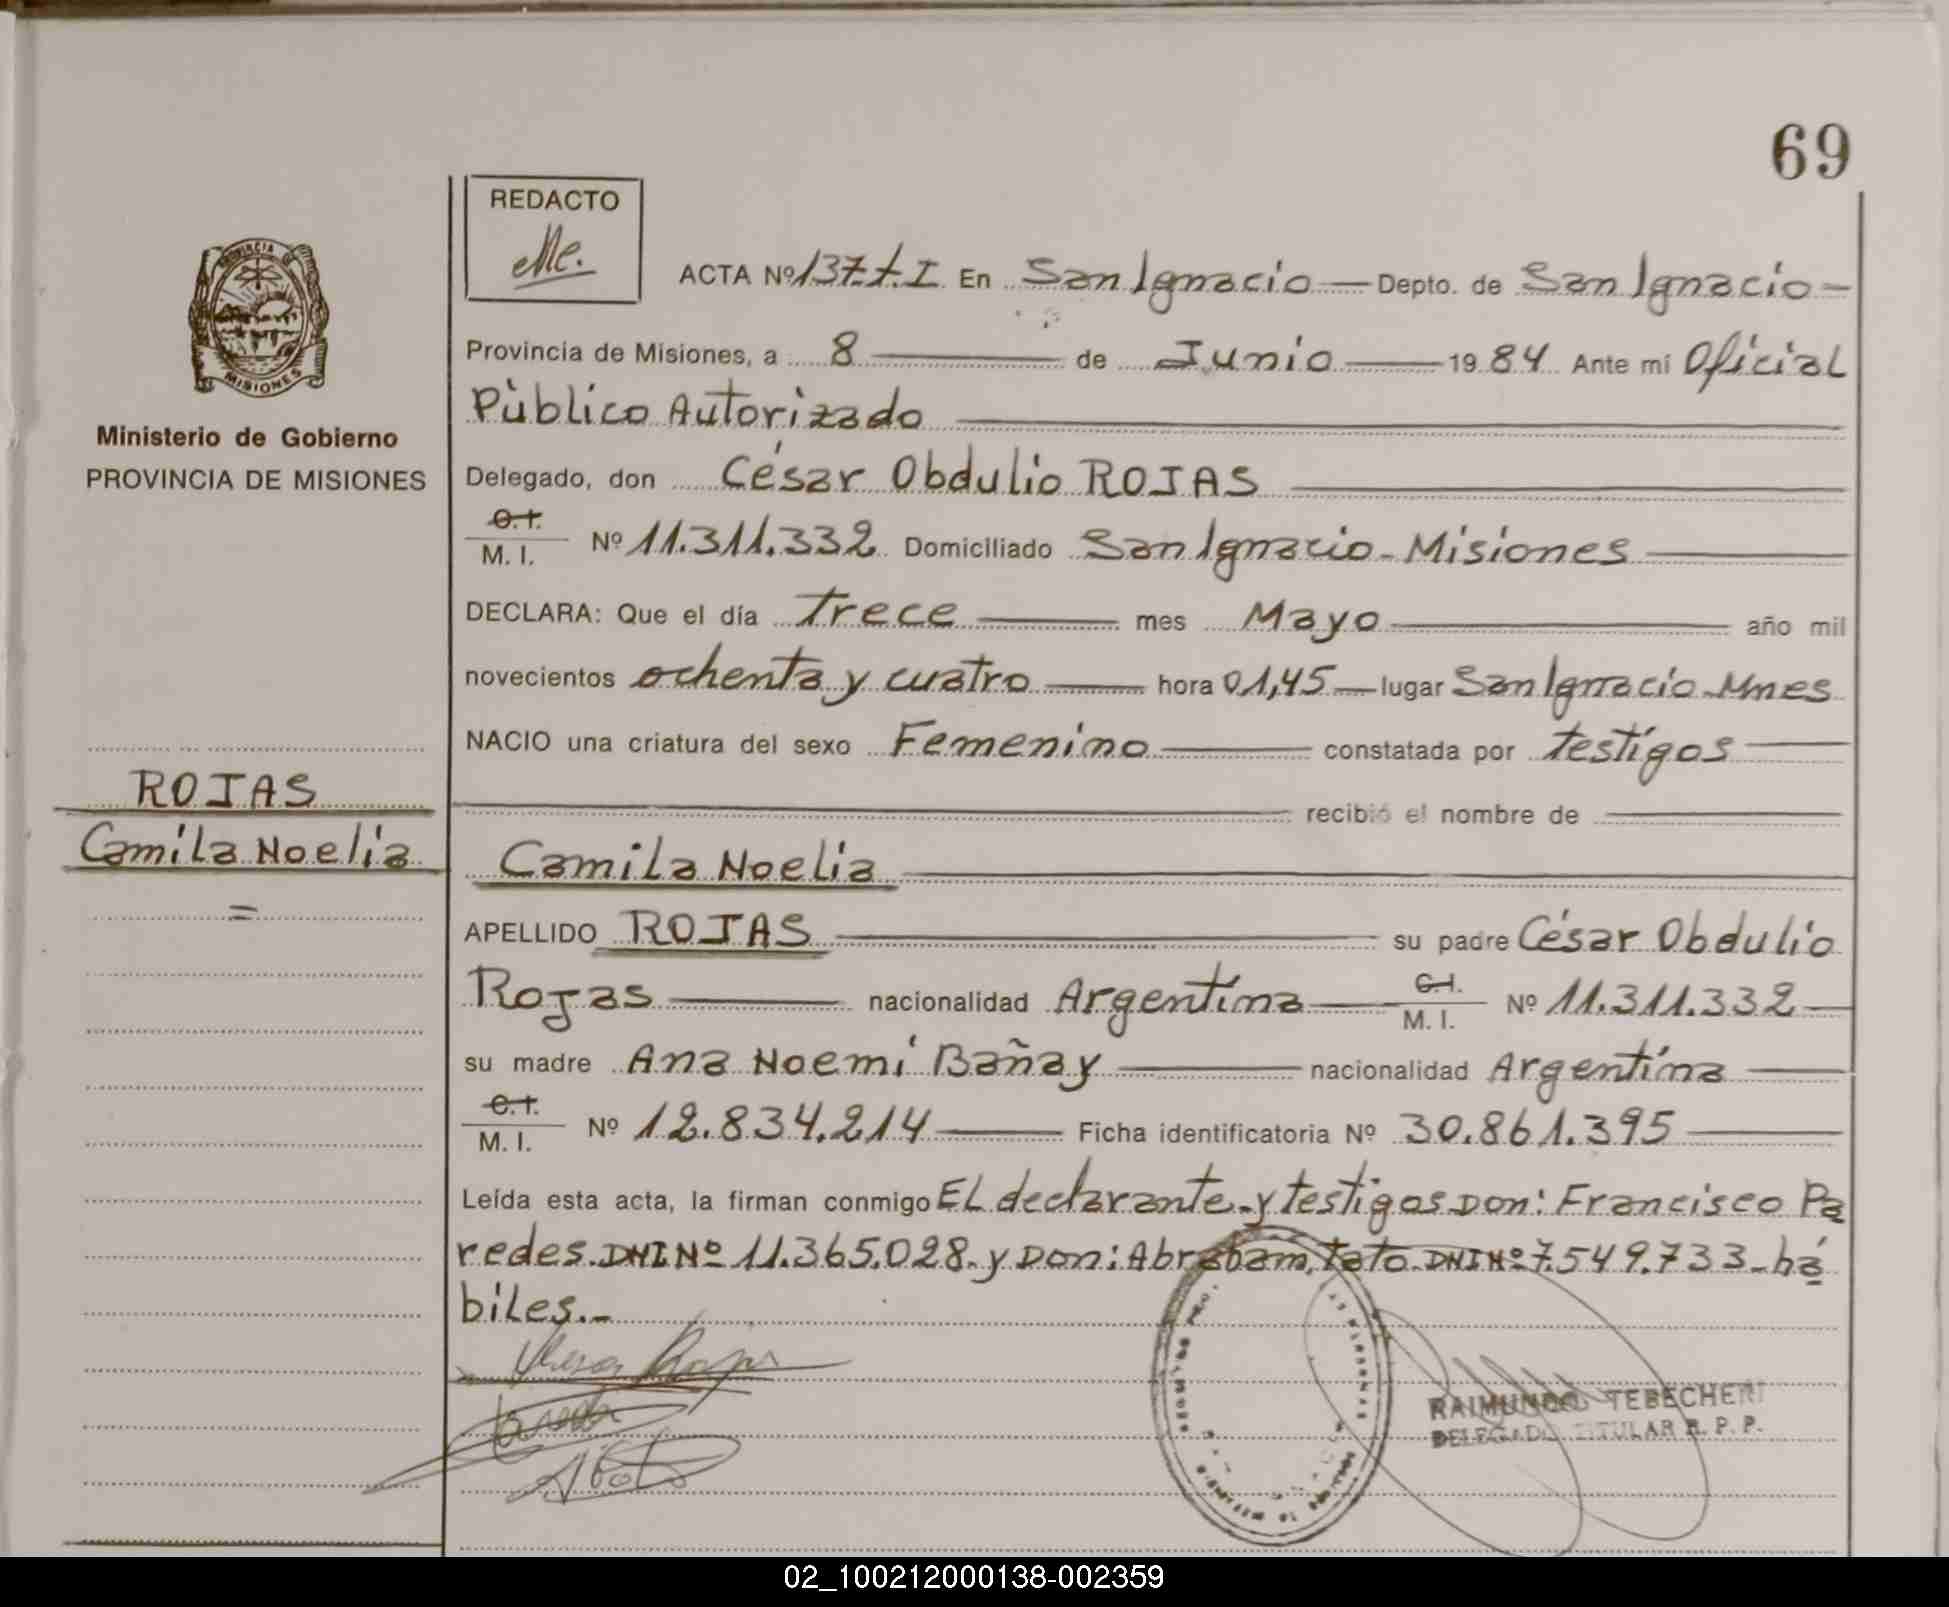 69
REDACTO
ACTA Nº 137.T.I. En San Ignacio — Depto. de San Ignacio —
Provincia de Misiones, a 8 — de Junio — 1984 Ante mí Oficial
Pùblico Autorizado
Ministerio de Gobierno
PROVINCIA DE MISIONES
Delegado, don César Obdulio ROJAS
C.I.
M. I. Nº 11.311.332 Domiciliado San Ignacio - Misiones
DECLARA: Que el día trece — mes Mayo — año mil
novecientos ochenta y cuatro — hora 01,45 — lugar San Ignacio - Mnes
NACIO una criatura del sexo Femenino — constatada por testigos —
ROJAS
recibió el nombre de
Camila Noelia
Camila Noelia
=
APELLIDO ROJAS — su padre César Obdulio
Rojas — nacionalidad Argentina — C.I.
M. I. Nº 11.311.332 —
su madre Ana Noemí Bañay — nacionalidad Argentina —
C.I.
M. I. Nº 12.834.214 — Ficha identificatoria Nº 30.861.395 —
Leída esta acta, la firman conmigo El declarante - y testigos Don: Francisco Pa
redes. DNI Nº 11.365.028. y Don: Abraham Toto. DNI Nº 7.549.733 - há
biles.-
RAIMUNDO TEBECHERI
DELEGADO TITULAR R. P. P.
02_100212000138-002359